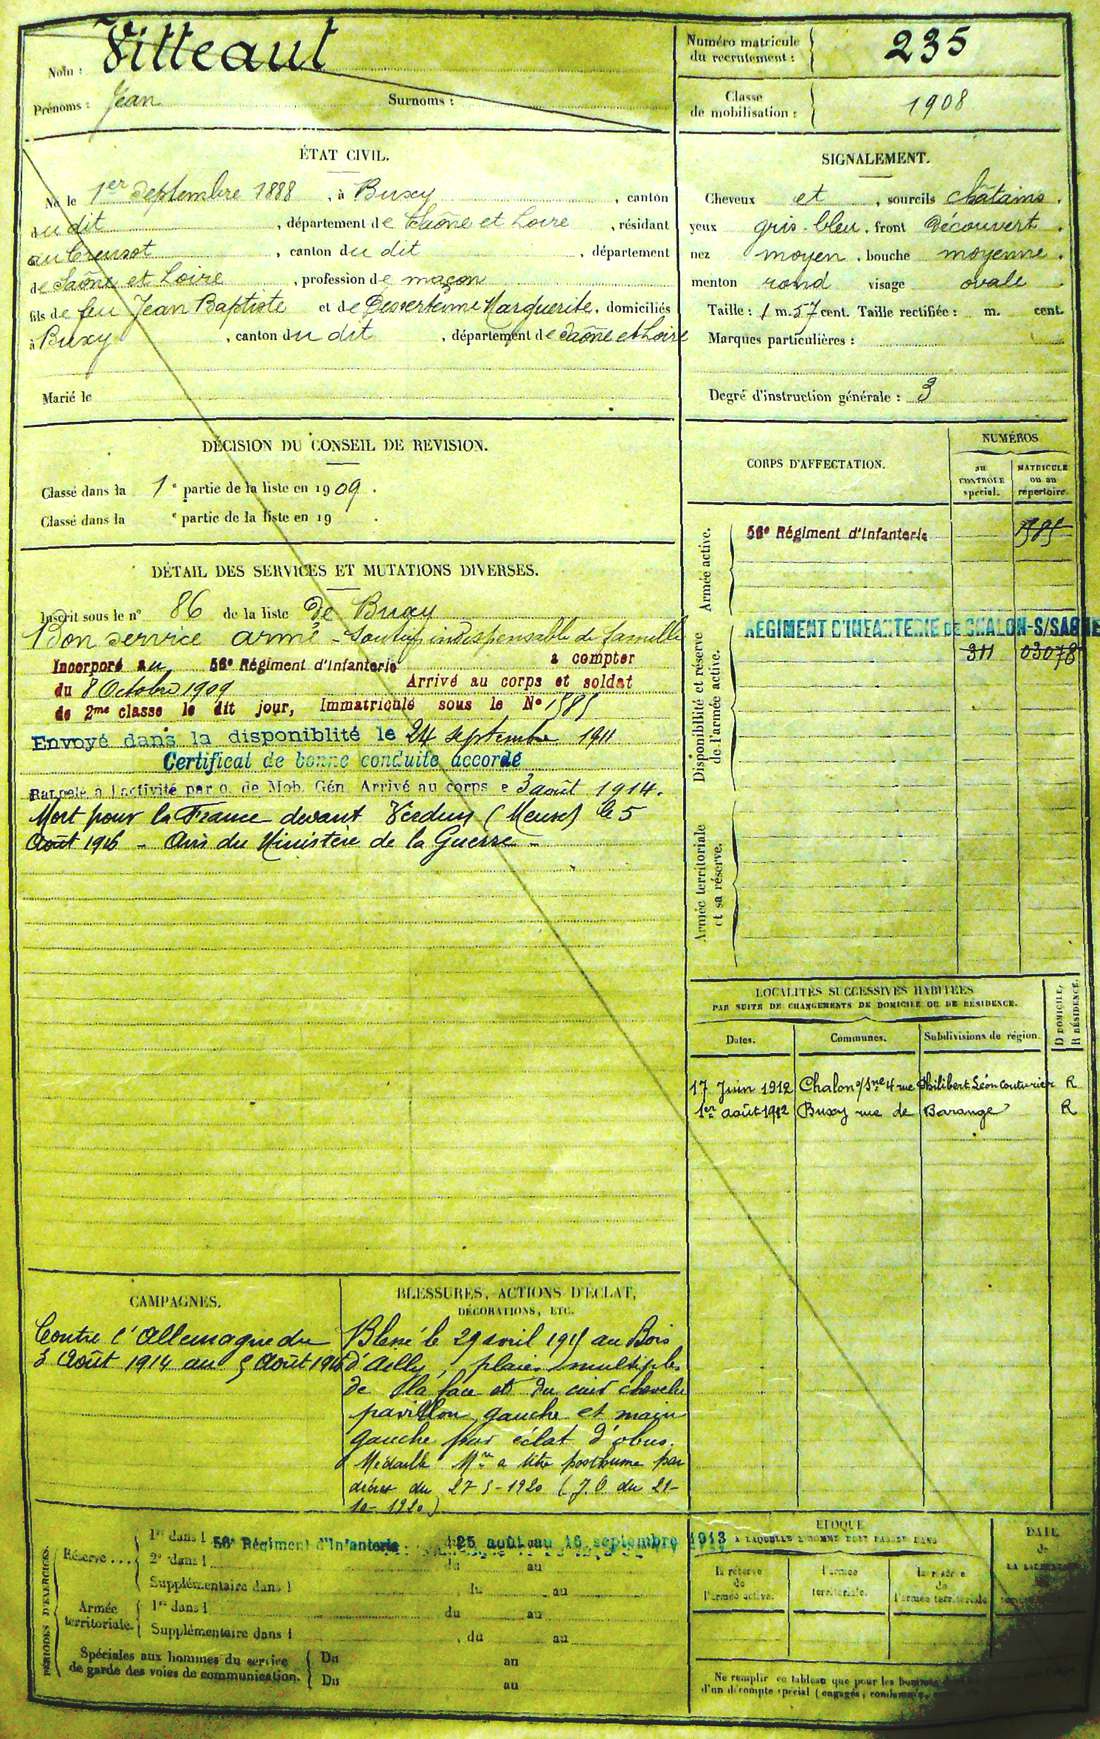 Nom : Vitteaut
Prénoms : Jean Surnoms :
Numéro matricule du recrutement : 235
Classe de mobilisation : 1908
ÉTAT CIVIL.
Né le 1er Septembre 1888, à Buxy, canton
du dit, département de Saône et Loire, résidant
au Creusot, canton du dit, département
de Saône et Loire, profession de maçon
fils de feu Jean Baptiste et de Dessertenne Marguerite, domiciliés
à Buxy, canton du dit, département de Saône et Loire
Marié le
SIGNALEMENT.
Cheveux et, sourcils châtains.
yeux gris-bleu, front découvert.
nez moyen, bouche moyenne.
menton rond visage ovale.
Taille : 1 m. 57 cent. Taille rectifiée : m. cent.
Marques particulières :
Degré d'instruction générale : 3
DÉCISION DU CONSEIL DE REVISION.
Classé dans la 1e partie de la liste en 1909.
Classé dans la e partie de la liste en 19 .
DÉTAIL DES SERVICES ET MUTATIONS DIVERSES.
Inscrit sous le n° 86 de la liste de Buxy
Bon service armé - Soutien indispensable de famille
Incorporé au 56e Régiment d'Infanterie à compter
du 8 Octobre 1909 Arrivé au corps et soldat
de 2me classe le dit jour, Immatriculé sous le N° 1585
Envoyé dans la disponiblité le 24 septembre 1911
Certificat de bonne conduite accordé
Rappelé à l'activité par o. de Mob. Gén. Arrivé au corps le 3 août 1914.
Mort pour la France devant Verdun (Meuse) le 5
Août 1916 - Avis du Ministère de la Guerre -
CORPS D'AFFECTATION.
NUMÉROS
au CONTRÔLE spécial.
MATRICULE ou au répertoire.
Armée active.
56e Régiment d'Infanterie 1585
Disponibilité et réserve de l'armée active.
RÉGIMENT D'INFANTERIE DE CHALON-S/SAÔNE
311 03078
Armée territoriale et sa réserve.
LOCALITÉS SUCCESSIVES HABITÉES
PAR SUITE DE CHANGEMENTS DE DOMICILE OU DE RÉSIDENCE.
Dates. Communes. Subdivisions de région. D DOMICILE, R RÉSIDENCE.
17 Juin 1912 Chalon s/Sne 4 rue Philibert Léon Couturier R
1er août 1912 Buxy rue de Barange R
CAMPAGNES.
Contre l'Allemagne du
3 Août 1914 au 5 Août 1916
BLESSURES, ACTIONS D'ÉCLAT,
DÉCORATIONS, ETC.
Blessé le 29 avril 1915 au Bois
d'Ailly, plaies multiples
de la face et du cuir chevelu
pavillon gauche et main
gauche par éclat d'obus.
Médaille Mre a titre posthume par
décret du 27-5-1920 (J.O. du 21-
10-1920)
PÉRIODES D'EXERCICES.
Réserve....
1re dans l 56e Régiment d'Infanterie du 25 août au 16 septembre 1913
2e dans l du au
Supplémentaire dans l , du au
Armée territoriale.
1re dans l du au
Supplémentaire dans l , du au
Spéciales aux hommes du service
de garde des voies de communication.
Du au
Du au
ÉPOQUE
À LAQUELLE L'HOMME DOIT PASSER DANS
la réserve de l'armée active.
l'armée territoriale.
la réserve de l'armée territoriale.
DATE
de
Ne remplir ce tableau que pour les hommes
d'un décompte spécial (engagés,